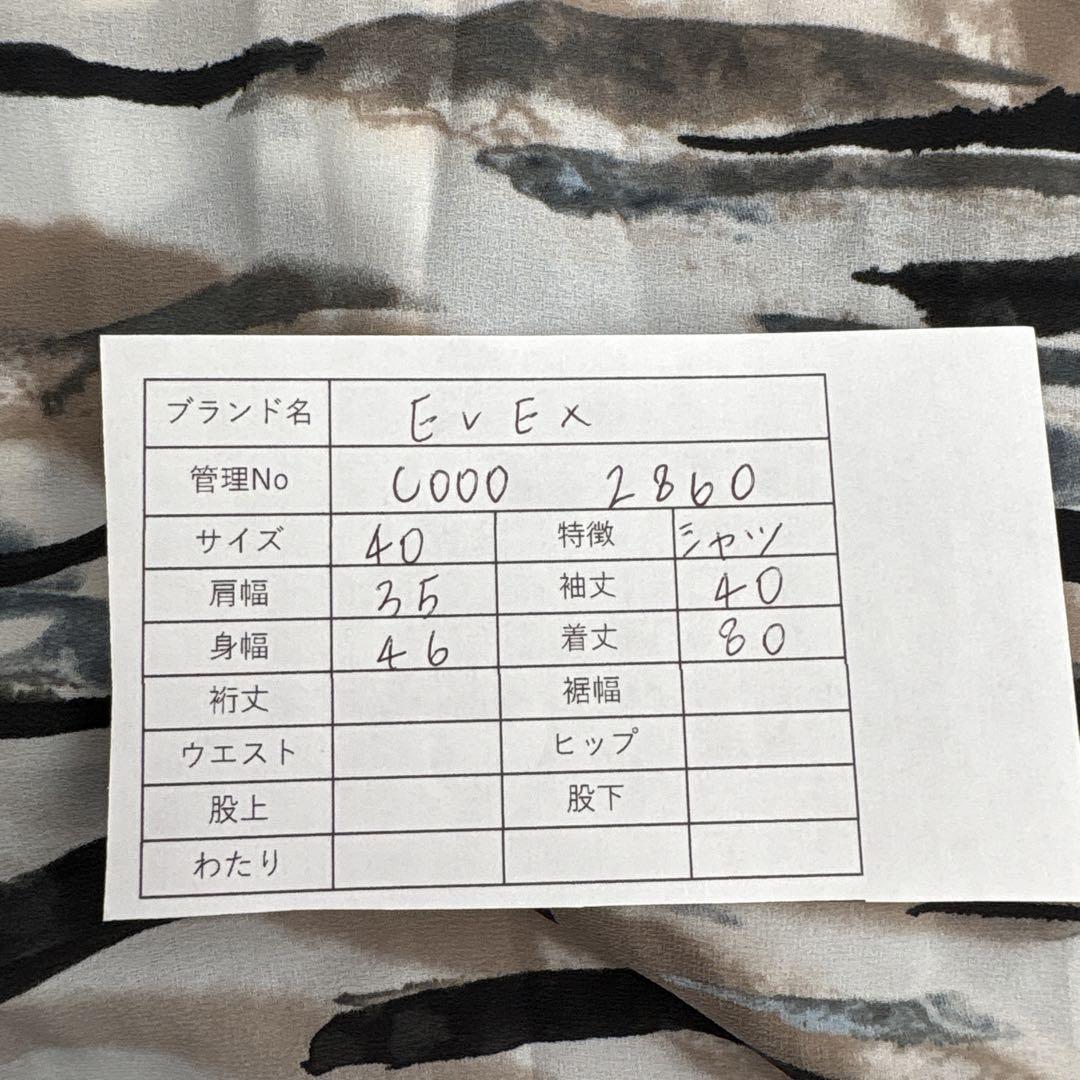 ブランド名 EVEX
管理No C000 2860
サイズ 40 特徴 シャツ
肩幅 35 袖丈 40
身幅 46 着丈 80
裄丈 裾幅
ウエスト ヒップ
股上 股下
わたり